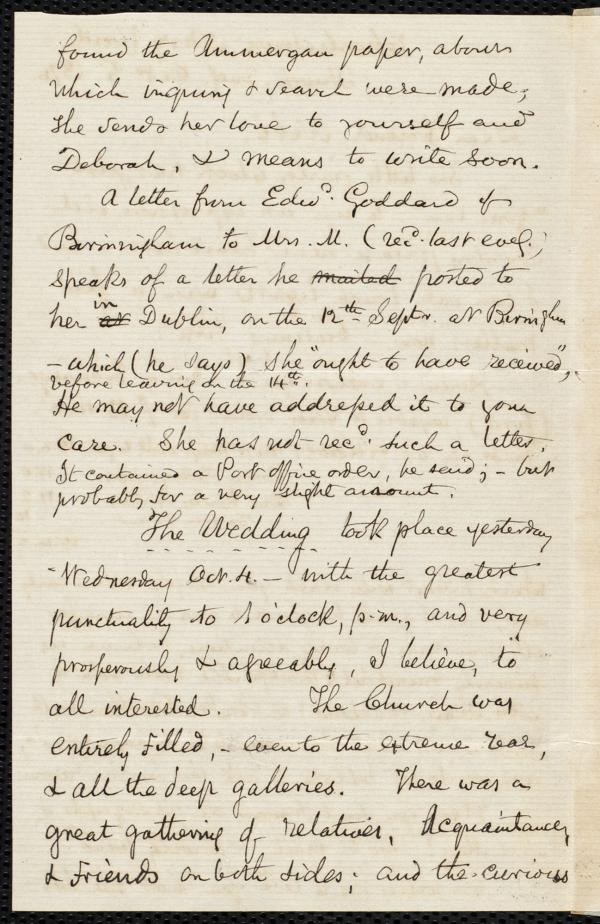 found the Ammergau paper, about
which inquiry & search were made;
she sends her love to yourself and
Deborah, & means to write soon.
A letter from Edwd. Goddard of
Birmingham to Mrs. M. (recd. last eveg.)
speaks of a letter he mailed posted to
her at in Dublin, on the 12th Septr. at Birmghm
- which (he says) she "ought to have received",
before leaving on the 14th.
He may not have addressed it to your
care. She has not recd. such a letter.
It contained a Post office order, he said; - but
probably for a very slight amount.
The Wedding took place yesterday
- Wednesday Oct. 4. - with the greatest
punctuality to 1 o'clock, p.m., and very
prosperously & agreeably, I believe, to
all interested. The Church was
entirely filled, - even to the extreme rear,
& all the deep galleries. There was a
great gathering of relatives, Acquaintances,
& friends on both sides; and the curious